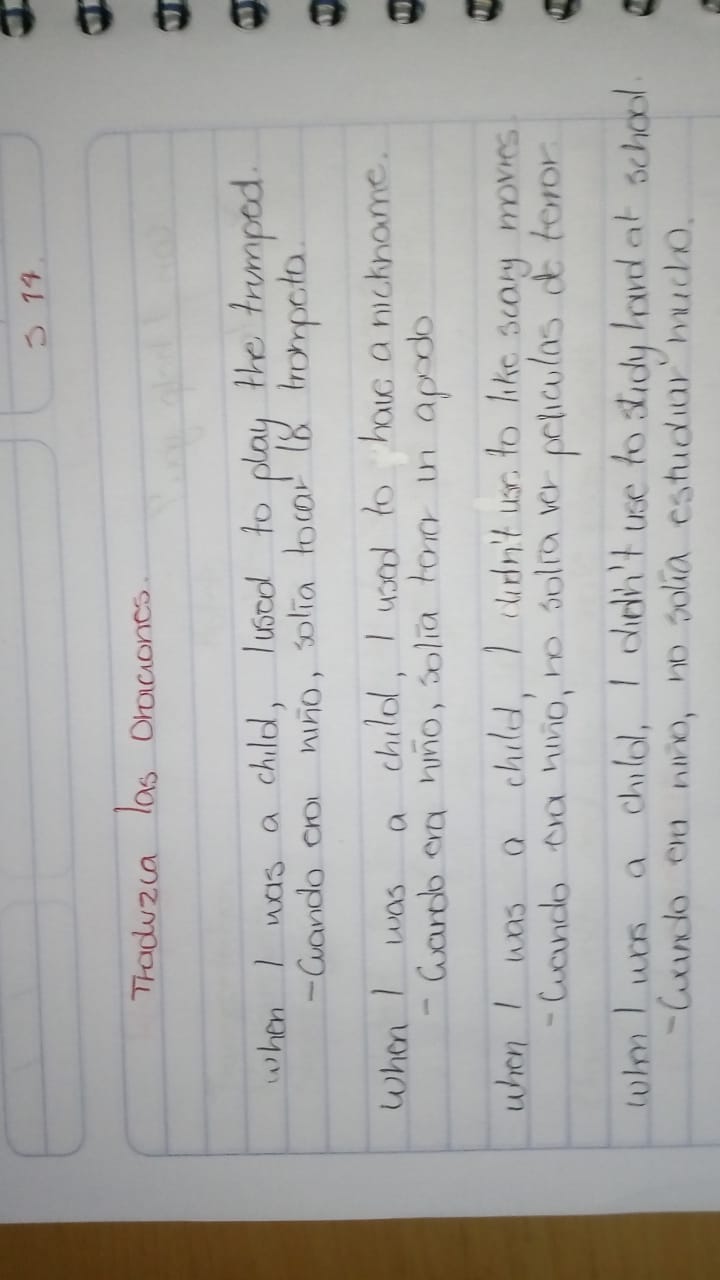 S 14.
Traduzca las Oraciones.
when I was a child, I used to play the trumped.
- Cuando era niño, solía tocar la trompeta.
When I was a child, I used to have a nickname.
- Cuando era niño, solía tener in apodo
when I was a child, I didn't use to like scary movies.
- Cuando era niño, no solía ver películas de terror.
When I was a child, I didn't use to study hard at school.
- Cuando era niño, no solía estudiar mucho.